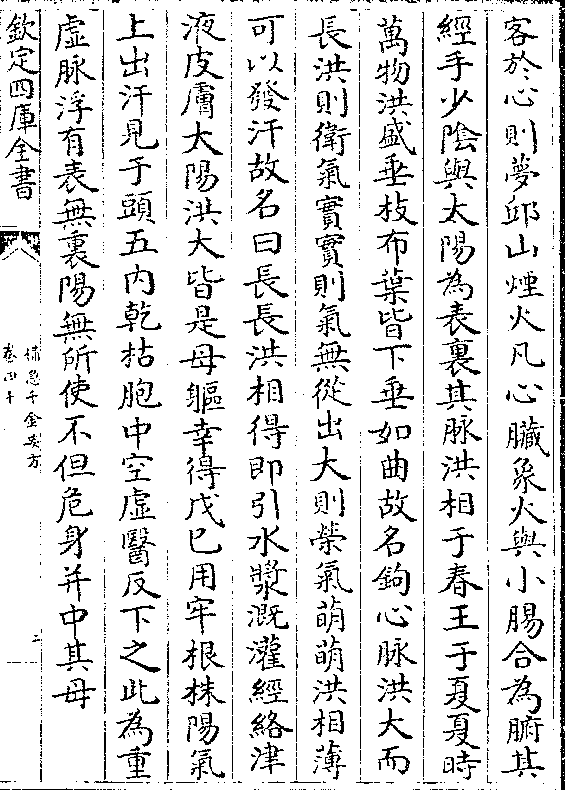 客於心則夢邱山煙火凡心臟象火與小腸合為腑其
經手少陰與太陽為表裏其脉洪相于春王于夏夏時
萬物洪盛垂枝布葉皆下垂如曲故名鉤心脉洪大而
長洪則衛氣實實則氣無從出大則榮氣萌萌洪相薄
可以發汗故名曰長長洪相得即引水漿溉灌經絡津
液皮膚太陽洪大皆是母軀幸得戊已用牢根株陽氣
上出汗見于頭五内乾枯胞中空虛醫反下之此為重
虛脉浮有表無裏陽無所使不但危身并中其母
欽定四庫全書
備急千金要方
卷四十
二